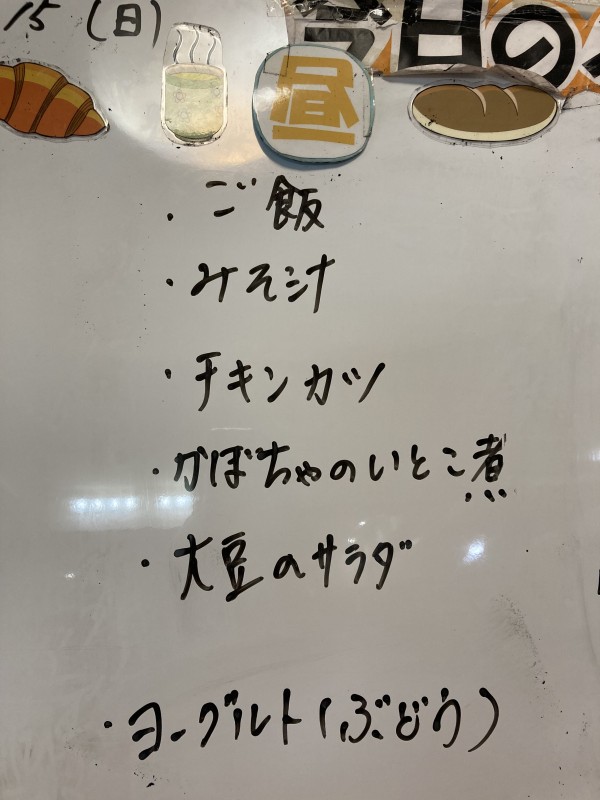 15 (日)
今日の
昼
・ご飯
・みそ汁
・チキンカツ
・かぼちゃのいとこ煮
・大豆のサラダ
・ヨーグルト(ぶどう)